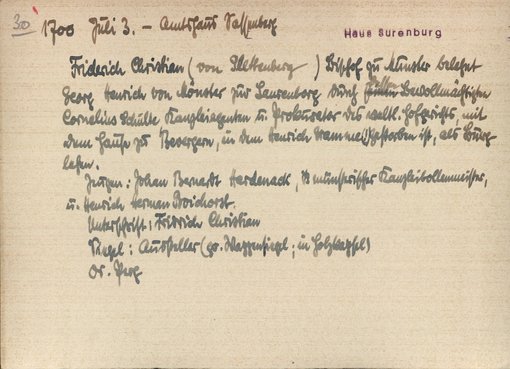 30 1700 Juli 3. - Amtshaus Sassenberg
Haus Surenburg
Friderich Christian (von Plettenberg) Bischof zu Münster belehnt
Georg Henrich von Mönster zur Surenborg durch Bevollmächtigten
Cornelius Schülte Kanzleiagenten u. Prokurator des weltl. Hofgerichts, mit
dem Hause zu Bevergern, in dem Henrich gestorben ist, als Burg
lehen.
Zeugen: Johan Bernardt Hardenack, münsterischer Kanzleibottenmeister,
u. Henrich Herman Boichorst.
Unterschrift: Fridrich Christian
Siegel: Aussteller (gr. Wappensiegel; in Holzkapsel)
Or. Perg